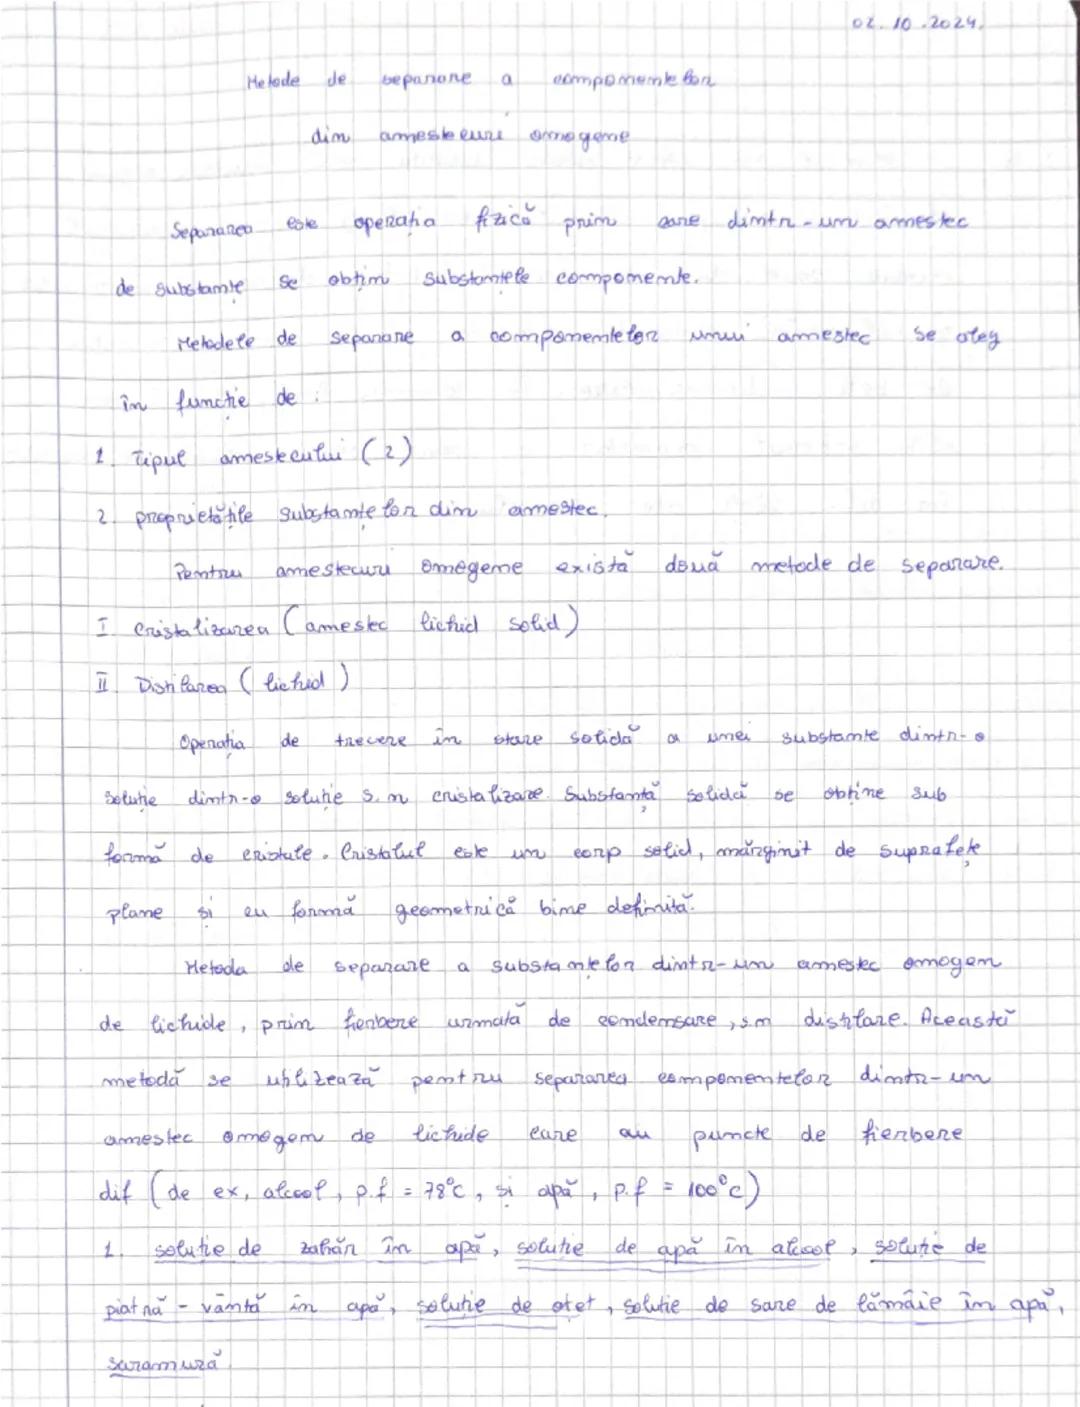 02.10.2024.
Metode de separare a componentelor
din amestecuri omogene
Separarea este operația fizică prin care dintr-un amestec
de substanțe se obțin substanțele componente.
Metodele de separare a componentelor unui amestec se aleg
în funcție de :
1. Tipul amestecului (2)
2. proprietățile substanțelor din amestec.
Pentru amestecuri omogene există două metode de separare.
I Cristalizarea (amestec lichid solid)
II. Distilarea ( lichid )
Operația de trecere în stare solidă a unei substanțe dintr-o
soluție dintr-o soluție s.n cristalizare. Substanță solidă se obține sub
formă de cristale. Cristalul este un corp solid, mărginit de suprafețe
plane și cu formă geometrică bine definită.
Metoda de separare a substanțelor dintr-un amestec omogen
de lichide, prin fierbere urmată de condensare, s.n distilare. Această
metodă se utilizează pentru separarea componentelor dintr-un
amestec omogen de lichide care au puncte de fierbere
dif (de ex, alcool, p.f = 78°C, și apă, p.f = 100°C)
1. soluție de zahăr în apă, soluție de apă în alcool, soluție de
piatră - vânătă în apă, soluție de oțet, soluție de sare de lămâie în apă,
saramură